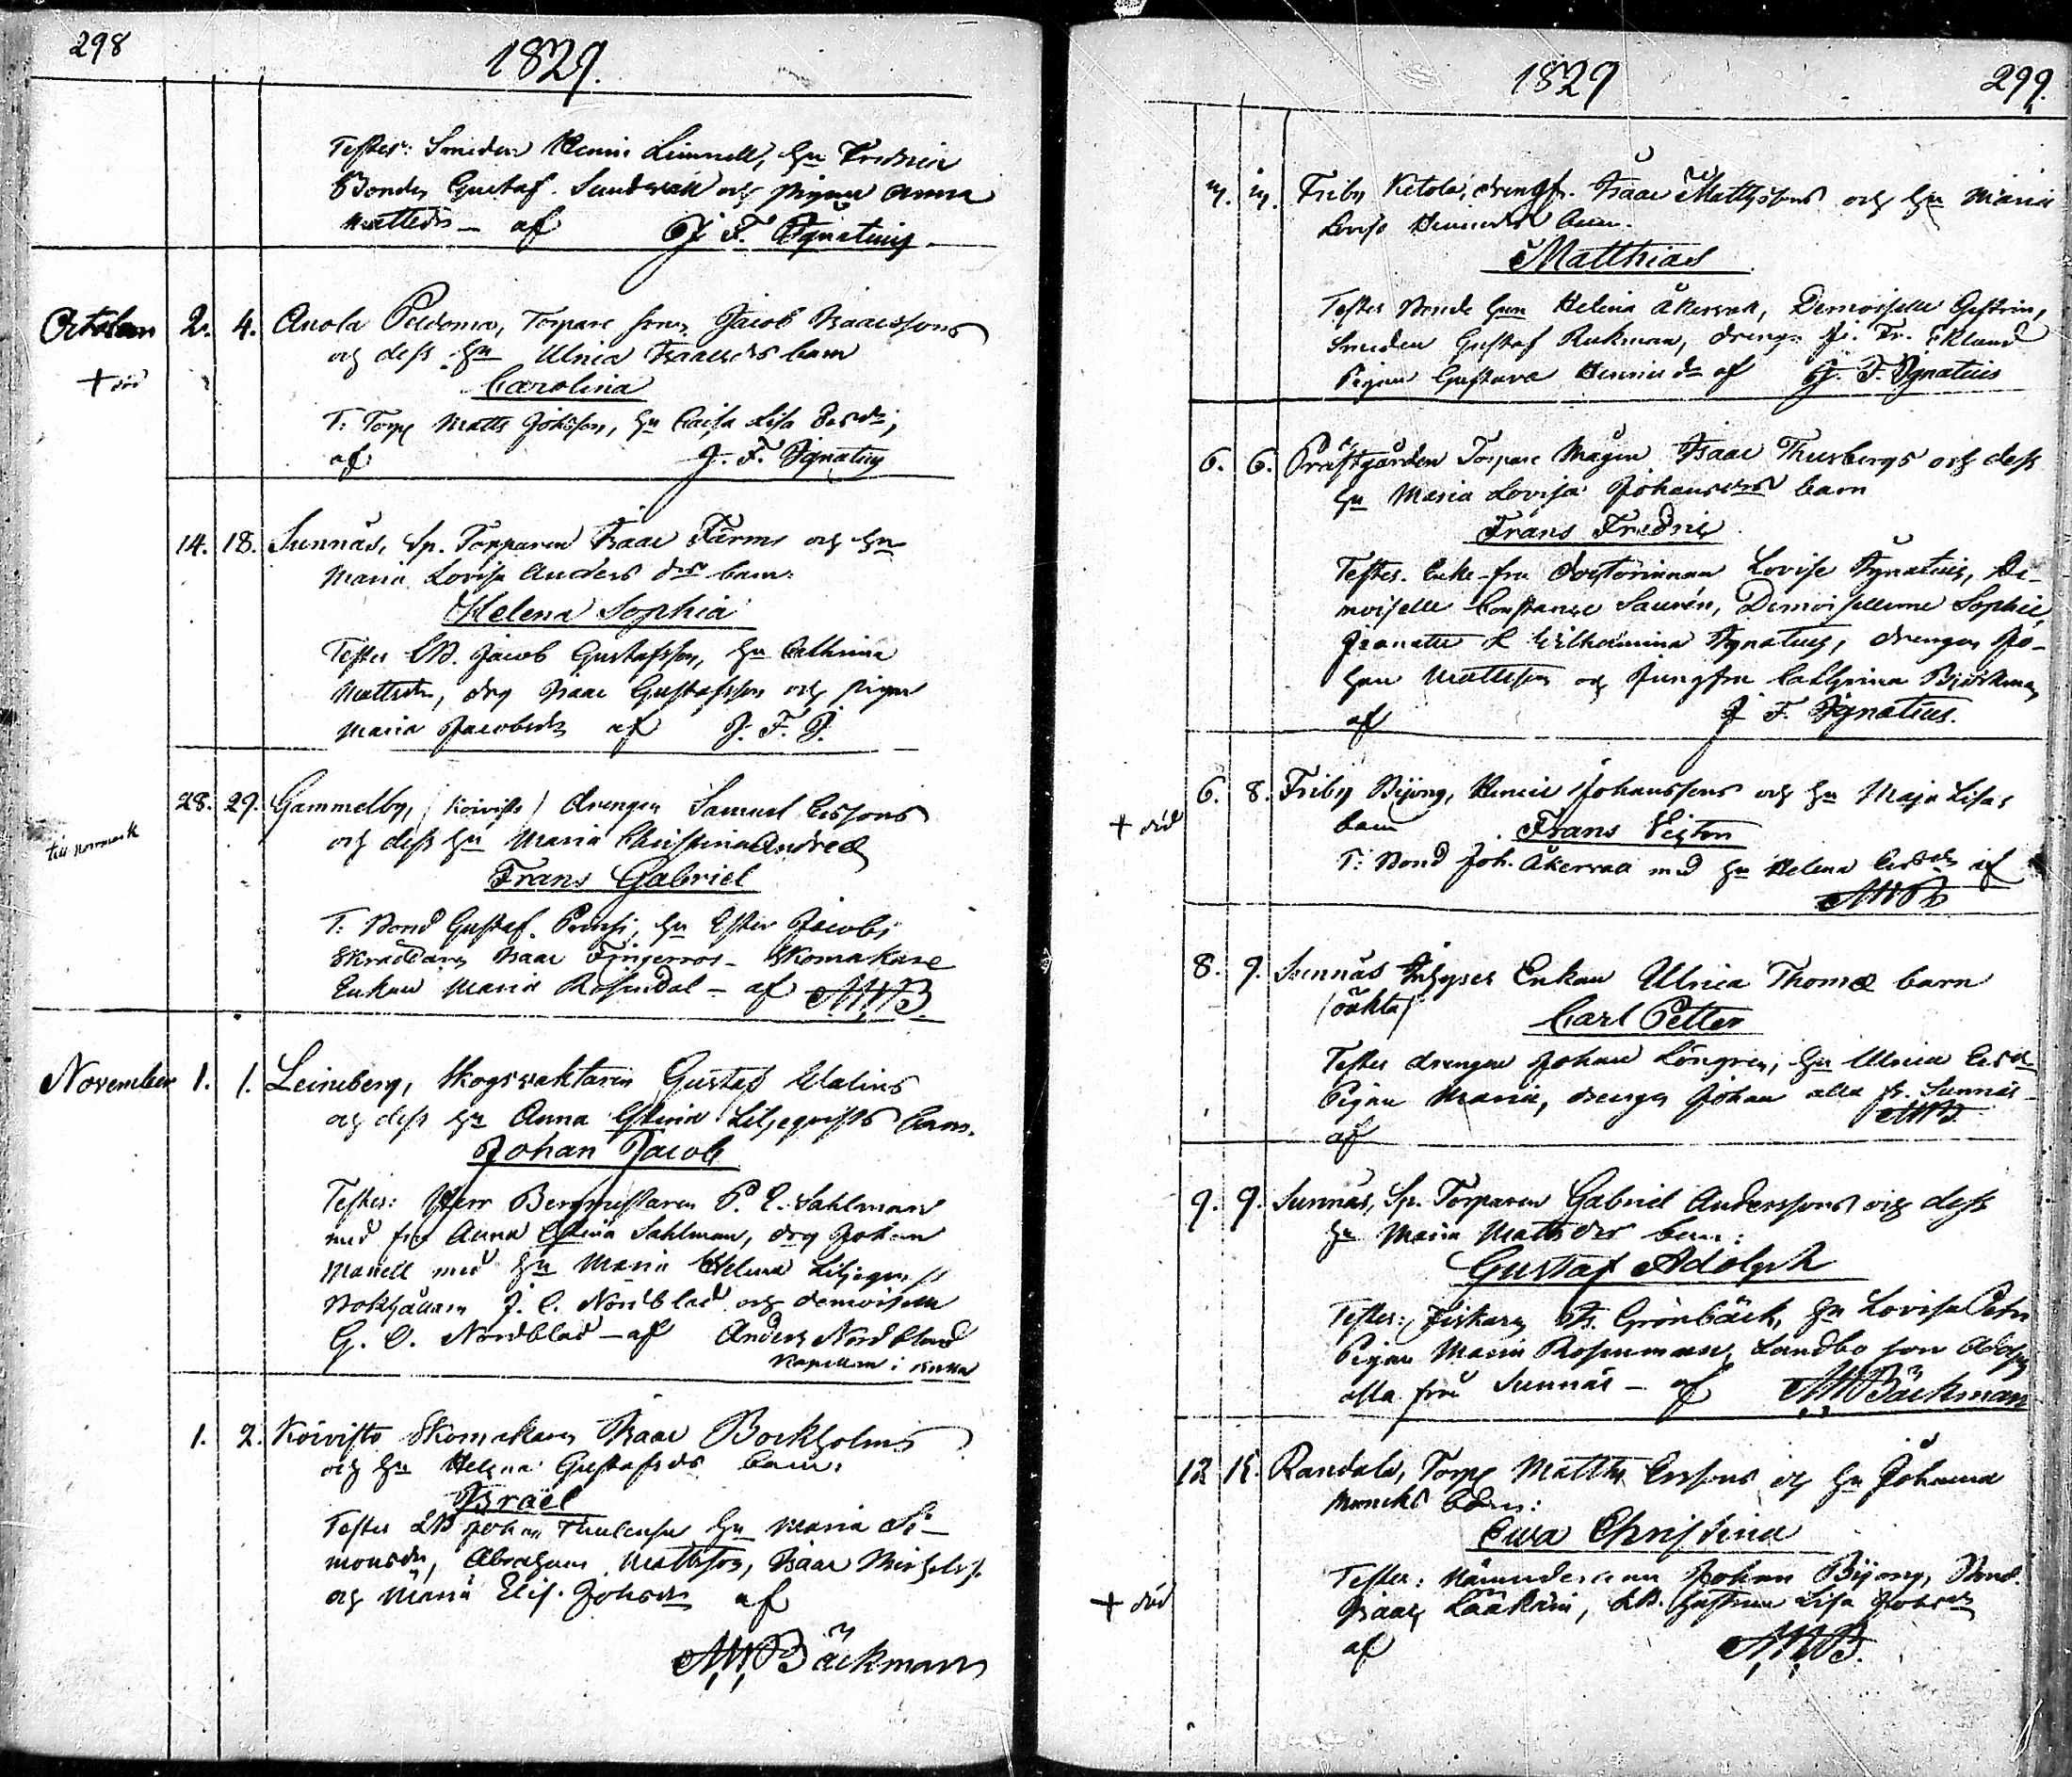 298
1829.
Testes: Smeden Henric Limnell, hu Fredrica
Bonden Gustaf Sundvall och pigan Anna
Mattsdr – af J. F. Ignatius.
October 2. 4. Anola Peldoma, Torpare sonen Jacob Isaacssons
+ död
och dess hu Ulrica Isaacsdrs barn
Carolina
T: Torp Matts Johsson, hu Caisa Lisa Ersdr;
af J. F. Ignatius
14. 18. Sunnäs, Sp. Torparen Isaac Färms och hu
Maria Lovisa Anders drs barn:
Helena Sophia
Testes LB. Jacob Gustafsson, hu Cathrina
Mattsdr, drg Isaac Gustafsson och pigan
Maria Jacobsdr af J. F. I.
28. 29. Gammelby, (Koivisto) drengen Samuel Erssons
till norrmark
och dess hu Maria Christina Andreæ
Frans Gabriel
T. Bond Gustaf Prensi, hu Ester Jacobs
Skräddaren Isaac Fingerroos – Skomakare
Enkan Maria Rosendal – af AWB.
November 1. 1. Leineberg, Skogsvaktaren Gustaf Walins
och dess hu Anna Estina Liljeqvists barn.
Johan Jacob
Testes: Herr Bergmestaren P. E. Sahlman
med fru Anna Estina Sahlman, drg Johan
Manell med hu Maria Helena Liljeqvist
Bokhållaren J. C. Nordblad och demoiselle
G. O. Nordblad – af Anders Nordblad
Kapellan i
1. 2. Koivisto Skomakaren Isaac Bockholms
och hu Helena Gustafsdrs barn:
Israël
Testes LB Johan hu Maria Si-
monsdr, Abraham Mattsson, Isaac Michelss.
och Maria Elis. Johsdr af
AWBäckman
1829
299.
3. 3. Friby Ketola, drengf. Isaac Mattssons och hu Maria
Lovisa Henricsdrs barn.
Matthias
Testes Bonde hun Helena Åkervall, Demoiselle Gestrin,
Smeden Gustaf Rukman, drengn Fr. Eklund
Pigan Gustava Henricsdr af J. F. Ignatius
6. 6. Prästgården Torpare Mågen Isaac Thurbergs och dess
hu Maria Lovisa Johansdrs barn
Frans Fredric
Testes. Enke-fru Doctorinnan Lovise Ignatius, De-
moiselle Constance Saurén, Demoisellerne Sophie,
Jeanette & Wilhelmina Ignatius, drengen Jo-
han Mattsson och Jungfru Cathrina Björkman
af J. F. Ignatius.
6. 8. Friby Bijong, Henric Johanssons och hu Maja Lisas
+ död
barn Frans Victor
T: Bond Joh. Åkervall med hu Helena Ersdr af
AWB
8. 9. Sunnäs Inhyses Enkan Ulrica Thomæ barn
(oäkta) Carl Petter
Testes drengen Johan Löngren, hu Ulrica Ersdr
Pigan Maria, drengen Johan alla fr. Sunnäs
af AWB.
9. 9. Sunnäs, Sp. Torparen Gabriel Anderssons och dess
hu Maria Mattsdrs barn:
Gustaf Adolph
Testes: Fiskaren Is. Grönbäck, hu Lovisa Petri
Pigan Maria Rosenman, Landbo son Adolph
alla från Sunnäs – af AWBäckman
12 15. Randala, Torp Matths Erssons och hu Johanna
Muncks barn:
Ewa Christina
Testes: Nämndeman Johan Bijong, Bond.
+ död
Isaac Laaksin, LB. hustrun Lisa Johsdr
af AWB.